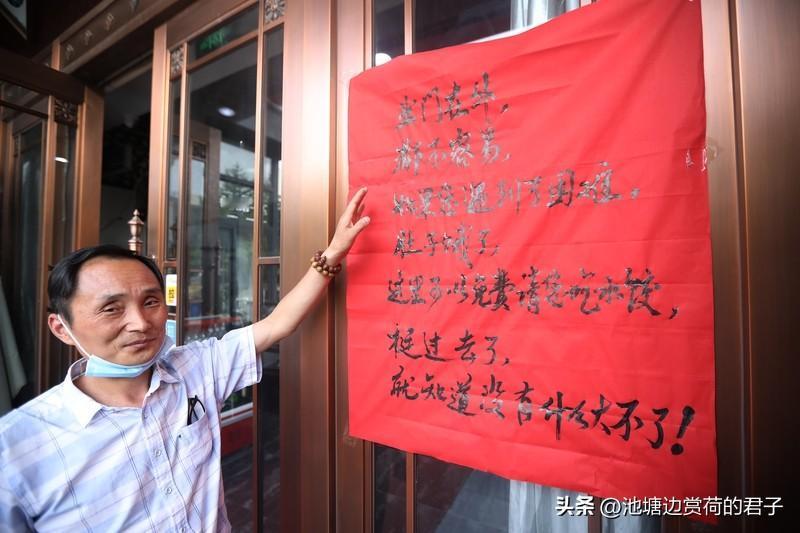 出门在外,
都不容易,
如果您遇到了困难,
肚子饿了,
这里可以免费请您吃水饺,
挺过去了,
就知道没有什么大不了!
头条 @池塘边赏荷的君子